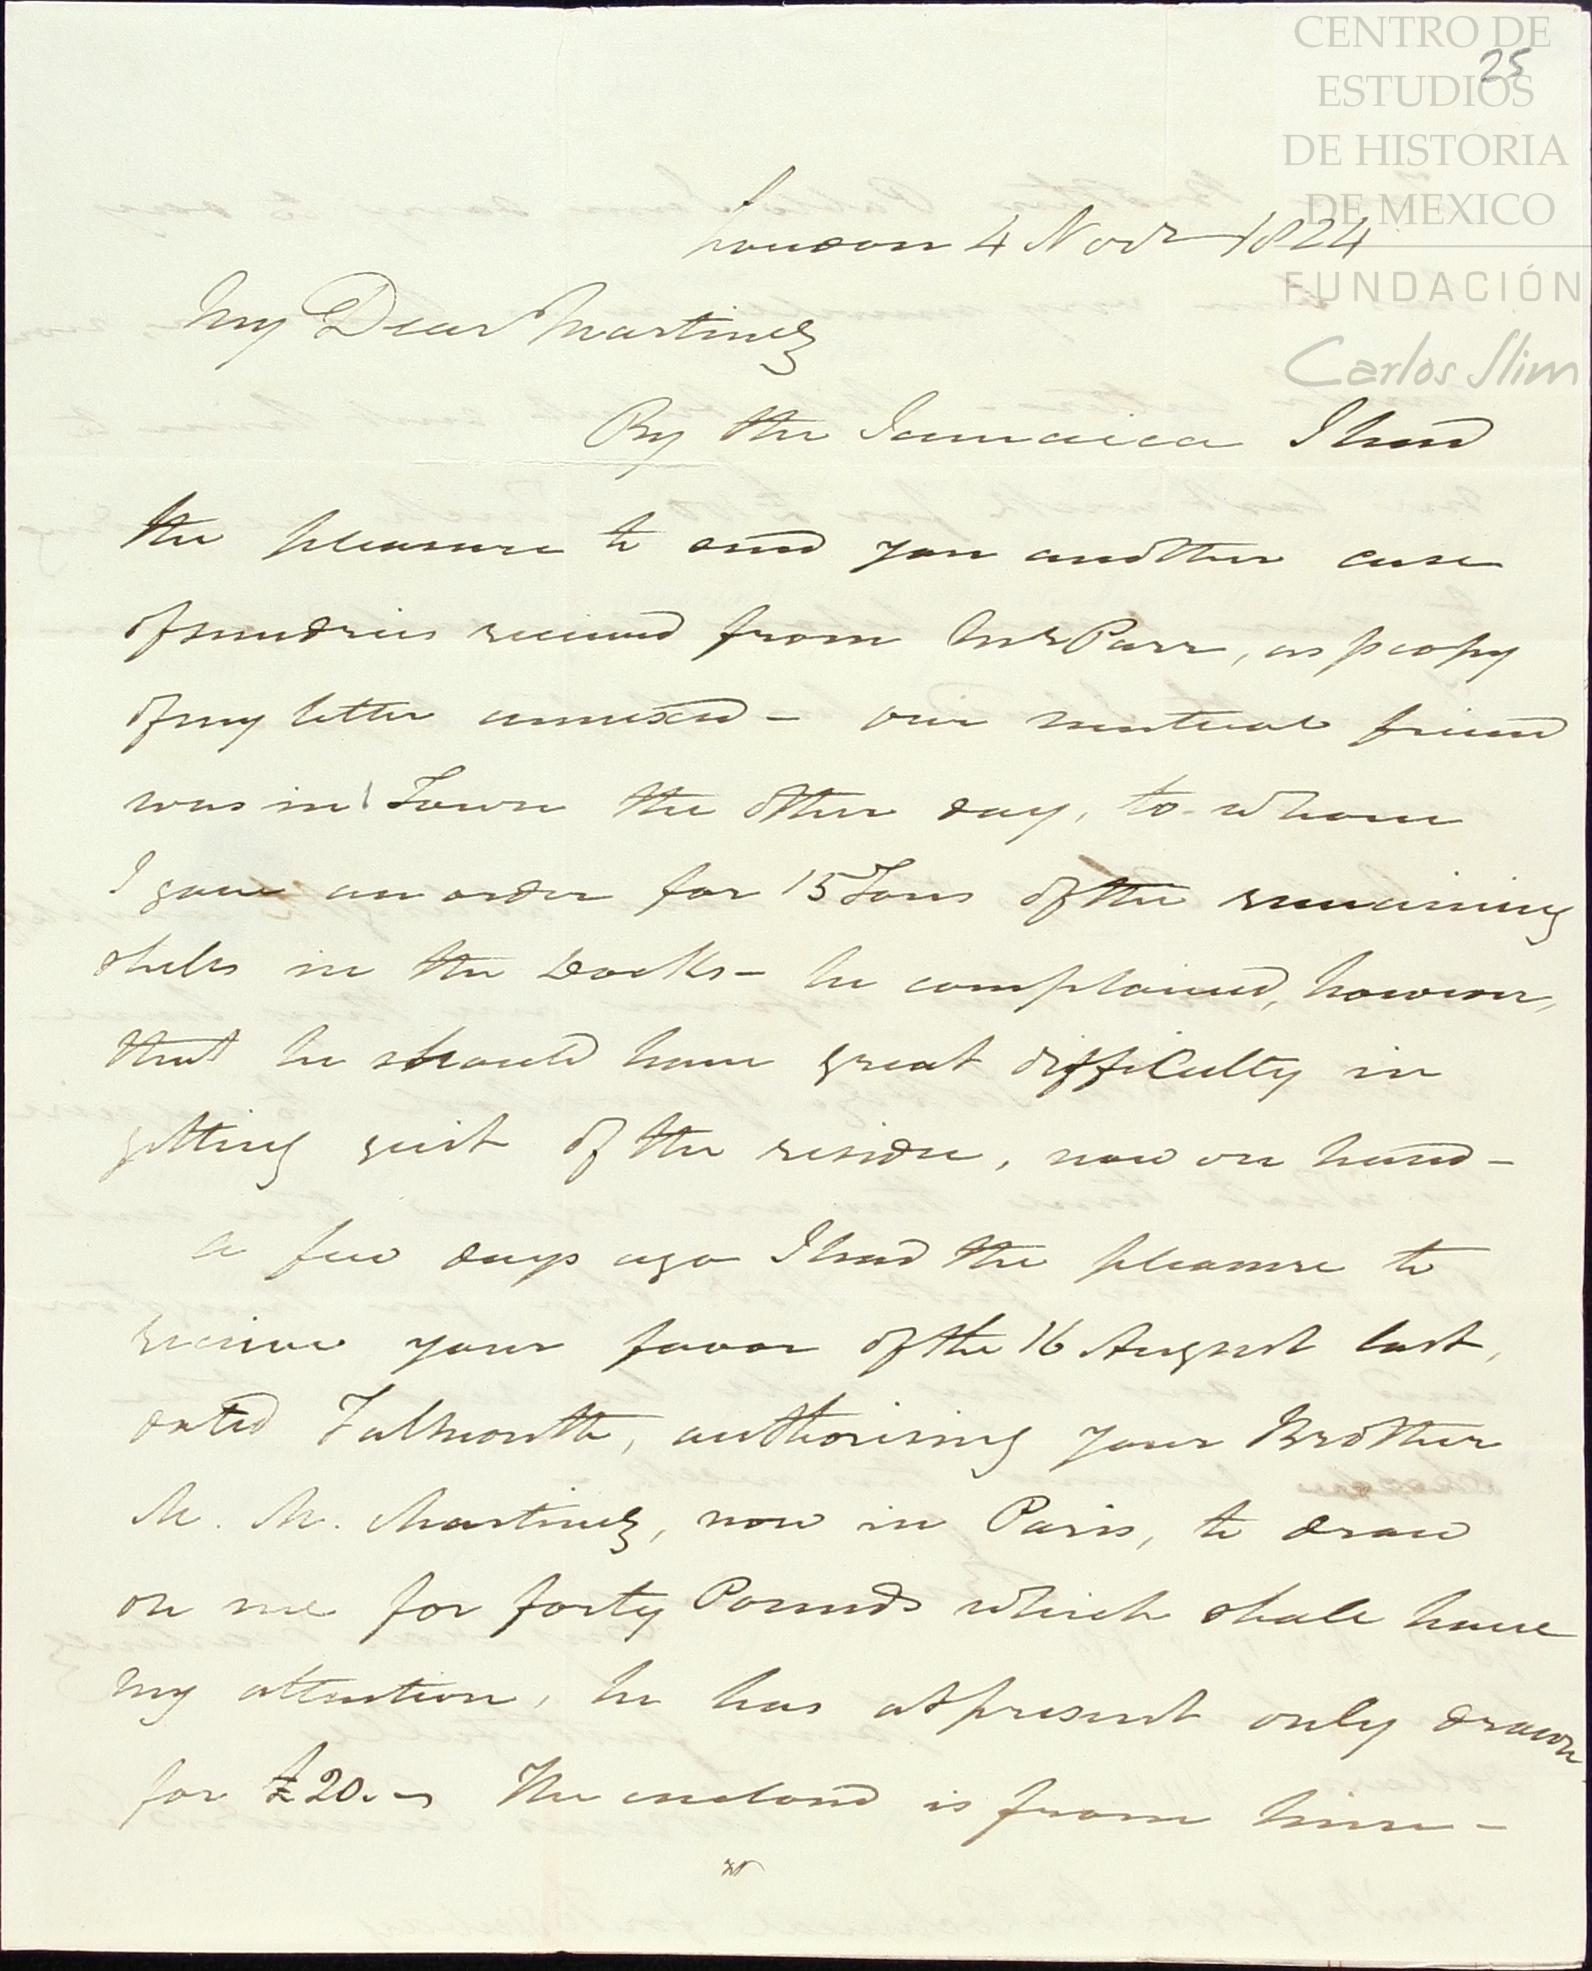 CENTRO DE
25
ESTUDIOS
DE HISTORIA
DE MEXICO
FUNDACIÓN
Carlos Slim
London 4 Novr 1824
My Dear Martinez
By the Jamaica I had
the pleasure to send you another case
of sundries received from Mr Parr, as p copy
of my letter annexed - our mutual friend
was in Town the other day, to whom
I gave an order for 15 Tons of the remaining
shells in the Docks - he complained, however,
that he should have great difficulty in
getting quit of the residue, now on hand -
a few days ago I had the pleasure to
receive your favor of the 16 August last,
dated Falmouth, authorising your Brother
M. M. Martinez, now in Paris, to draw
on me for forty Pounds which shall have
my attention, he has at present only drawn
for £20.- The enclosed is from him -